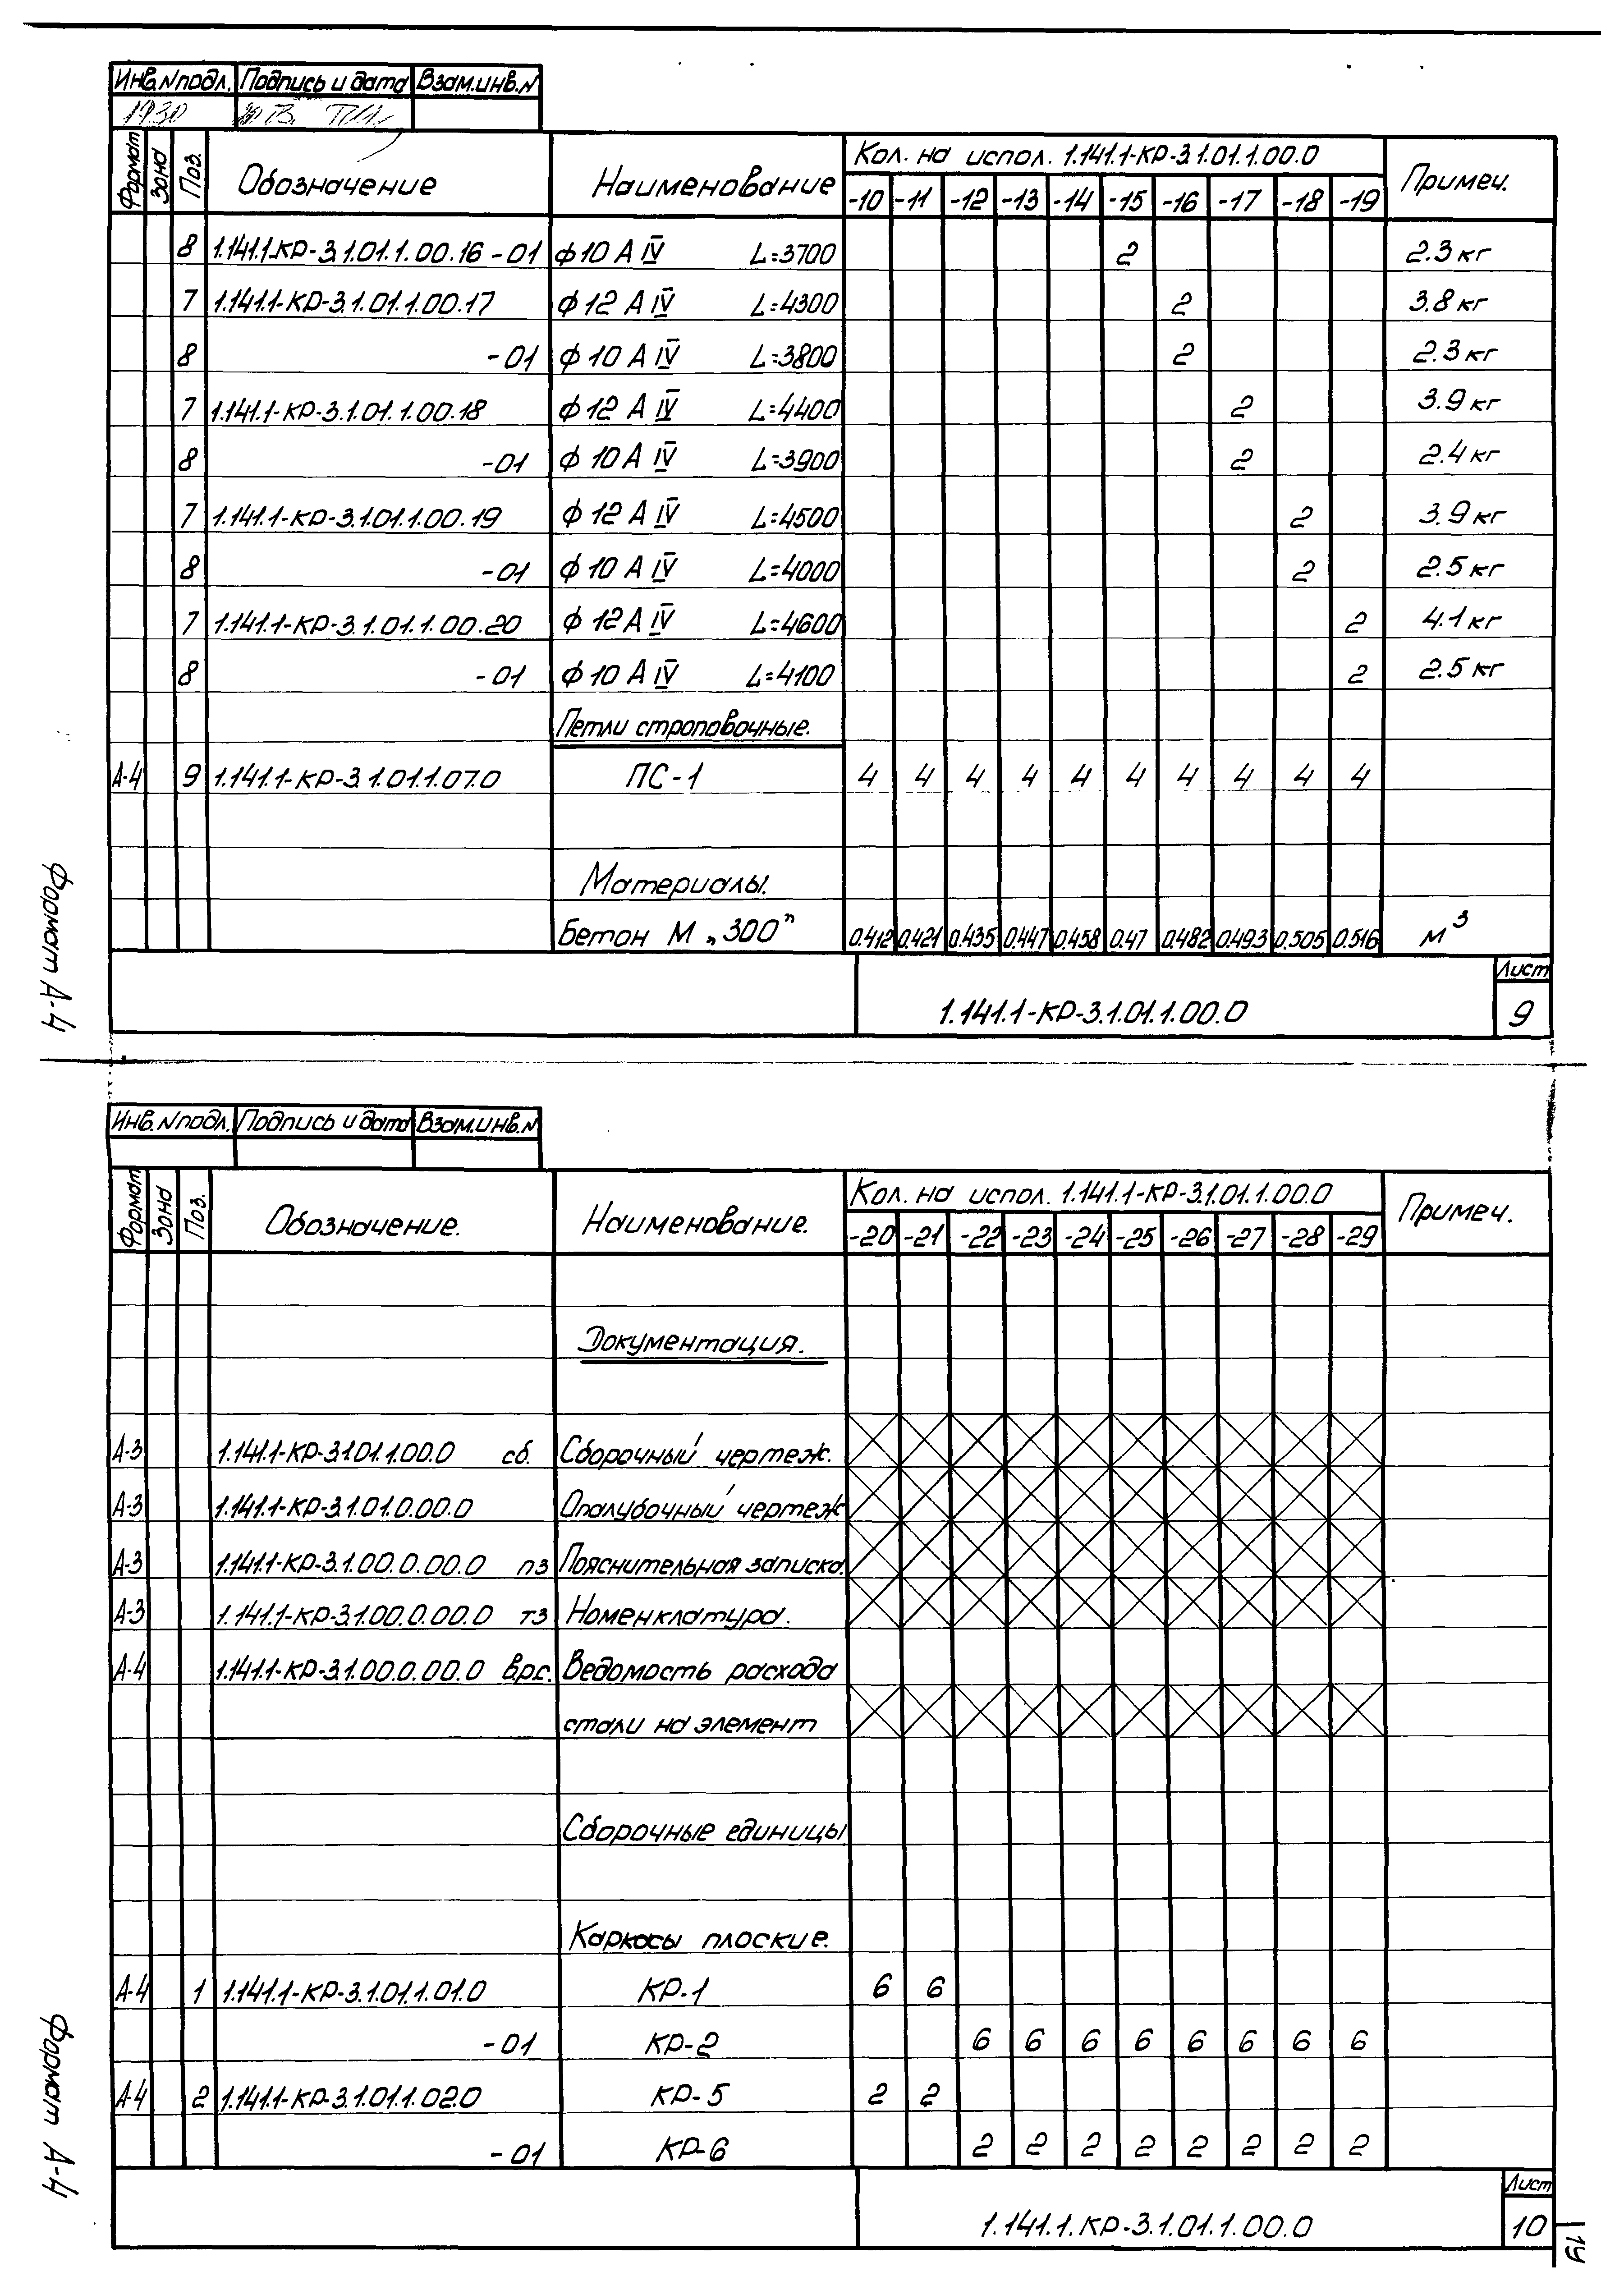 Инв.N подл. Подпись и дата Взам.инв.N
1930
Формат Зона Поз. Обозначение Наименование Кол. на испол. 1.141.1-КР-3.1.01.1.00.0 Примеч.
-10 -11 -12 -13 -14 -15 -16 -17 -18 -19
8 1.141.1-КР-3.1.01.1.00.16 -01 ф10 А IV L=3700 2 2.3 кг
7 1.141.1-КР-3.1.01.1.00.17 ф 12 А IV L=4300 2 3.8 кг
8 -01 ф 10 А IV L=3800 2 2.3 кг
7 1.141.1-КР-3.1.01.1.00.18 ф 12 А IV L=4400 2 3.9 кг
8 -01 ф 10 А IV L=3900 2 2.4 кг
7 1.141.1-КР-3.1.01.1.00.19 ф 12 А IV L=4500 2 3.9 кг
8 -01 ф 10 А IV L=4000 2 2.5 кг
7 1.141.1-КР-3.1.01.1.00.20 ф 12 А IV L=4600 2 4.1 кг
8 -01 ф 10 А IV L=4100 2 2.5 кг
Петли строповочные.
А-4 9 1.141.1-КР-3.1.01.1.07.0 ПС-1 4 4 4 4 4 4 4 4 4 4
Материалы.
бетон М „300" 0.412 0.421 0.435 0.447 0.458 0.47 0.482 0.493 0.505 0.516 м³
1.141.1-КР-3.1.01.1.00.0
Лист
9
Формат А-4
Инв.N подл. Подпись и дата Взам.инв.N
Формат Зона Поз. Обозначение. Наименование. Кол. на испол. 1.141.1-КР-3.1.01.1.00.0 Примеч.
-20 -21 -22 -23 -24 -25 -26 -27 -28 -29
Документация.
А-3 1.141.1-КР-3.1.01.1.00.0 сб. Сборочный чертеж.
А-3 1.141.1-КР-3.1.01.0.00.0 Опалубочный чертеж
А-3 1.141.1-КР-3.1.00.0.00.0 пз Пояснительная записка.
А-3 1.141.1-КР-3.1.00.0.00.0 тз Номенклатура.
А-4 1.141.1-КР-3.1.00.0.00.0 в.р.с. Ведомость расхода
стали на элемент
Сборочные единицы
Каркасы плоские.
А-4 1 1.141.1-КР-3.1.01.1.01.0 КР-1 6 6
-01 КР-2 6 6 6 6 6 6 6 6
А-4 2 1.141.1-КР-3.1.01.1.02.0 КР-5 2 2
-01 КР-6 2 2 2 2 2 2 2 2
1.141.1.КР-3.1.01.1.00.0
Лист
10
Формат А-4
14